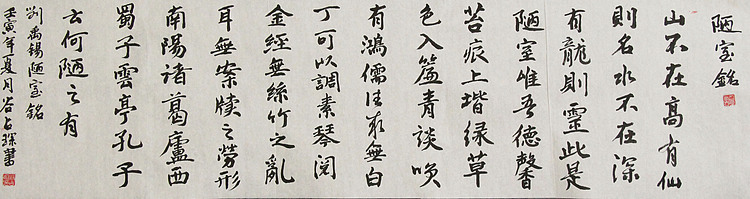 陋室銘
山不在高有仙
則名水不在深
有龍則靈此是
陋室惟吾德馨
苔痕上堦绿草
色入簾青談咲
有鴻儒往来無白
丁可以調素琴閲
金經無絲竹之亂
耳無案牘之勞形
南陽諸葛廬西
蜀子雲亭孔子
云何陋之有
劉禹錫陋室銘
壬寅年夏月谷占琛書